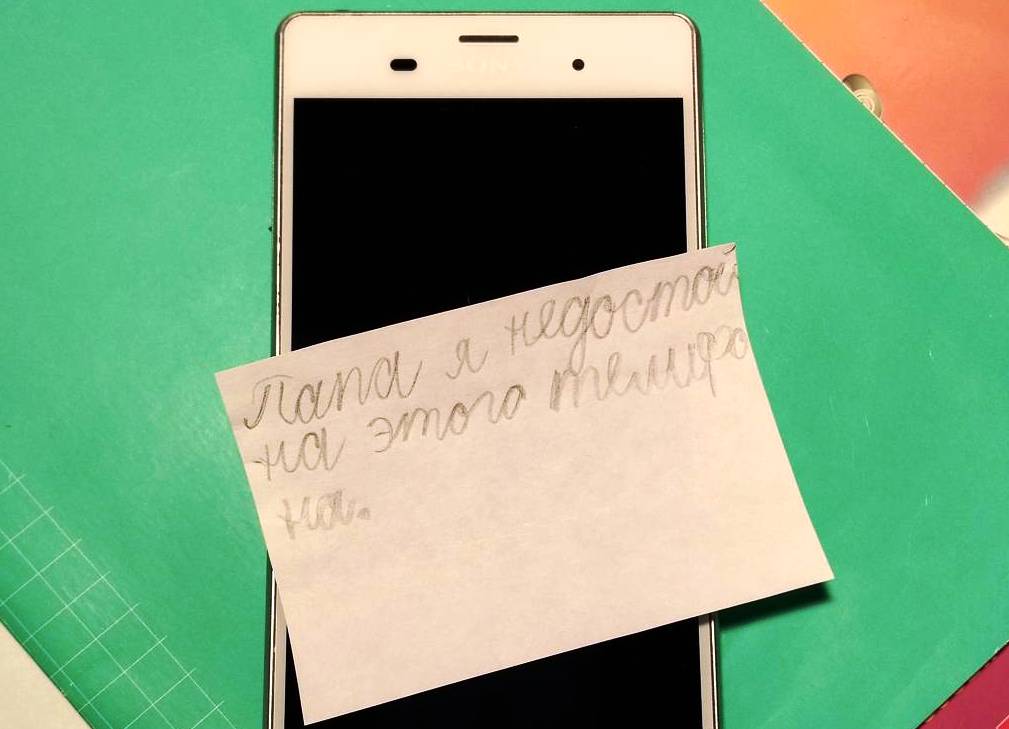 SONY
Папа я недостой
на этого телифо
на.